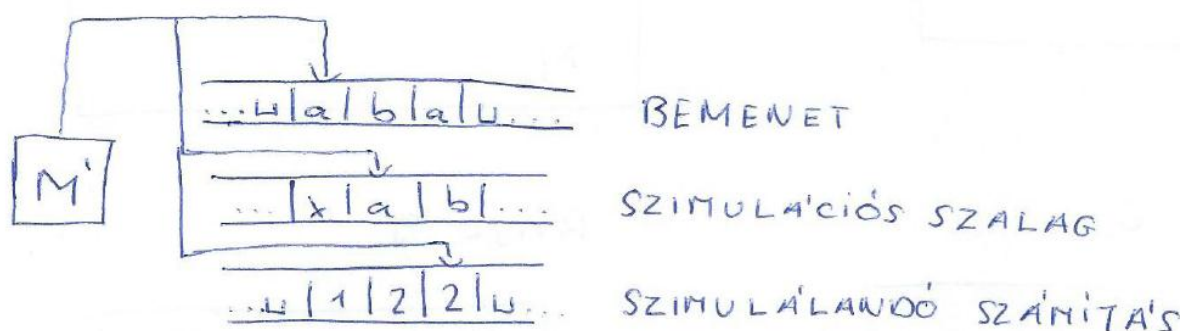 ...⊔|a|b|a|⊔... BEMENET
M'
...|x|a|b|... SZIMULÁCIÓS SZALAG
...⊔|1|2|2|⊔... SZIMULÁLANDÓ SZÁMÍTÁS